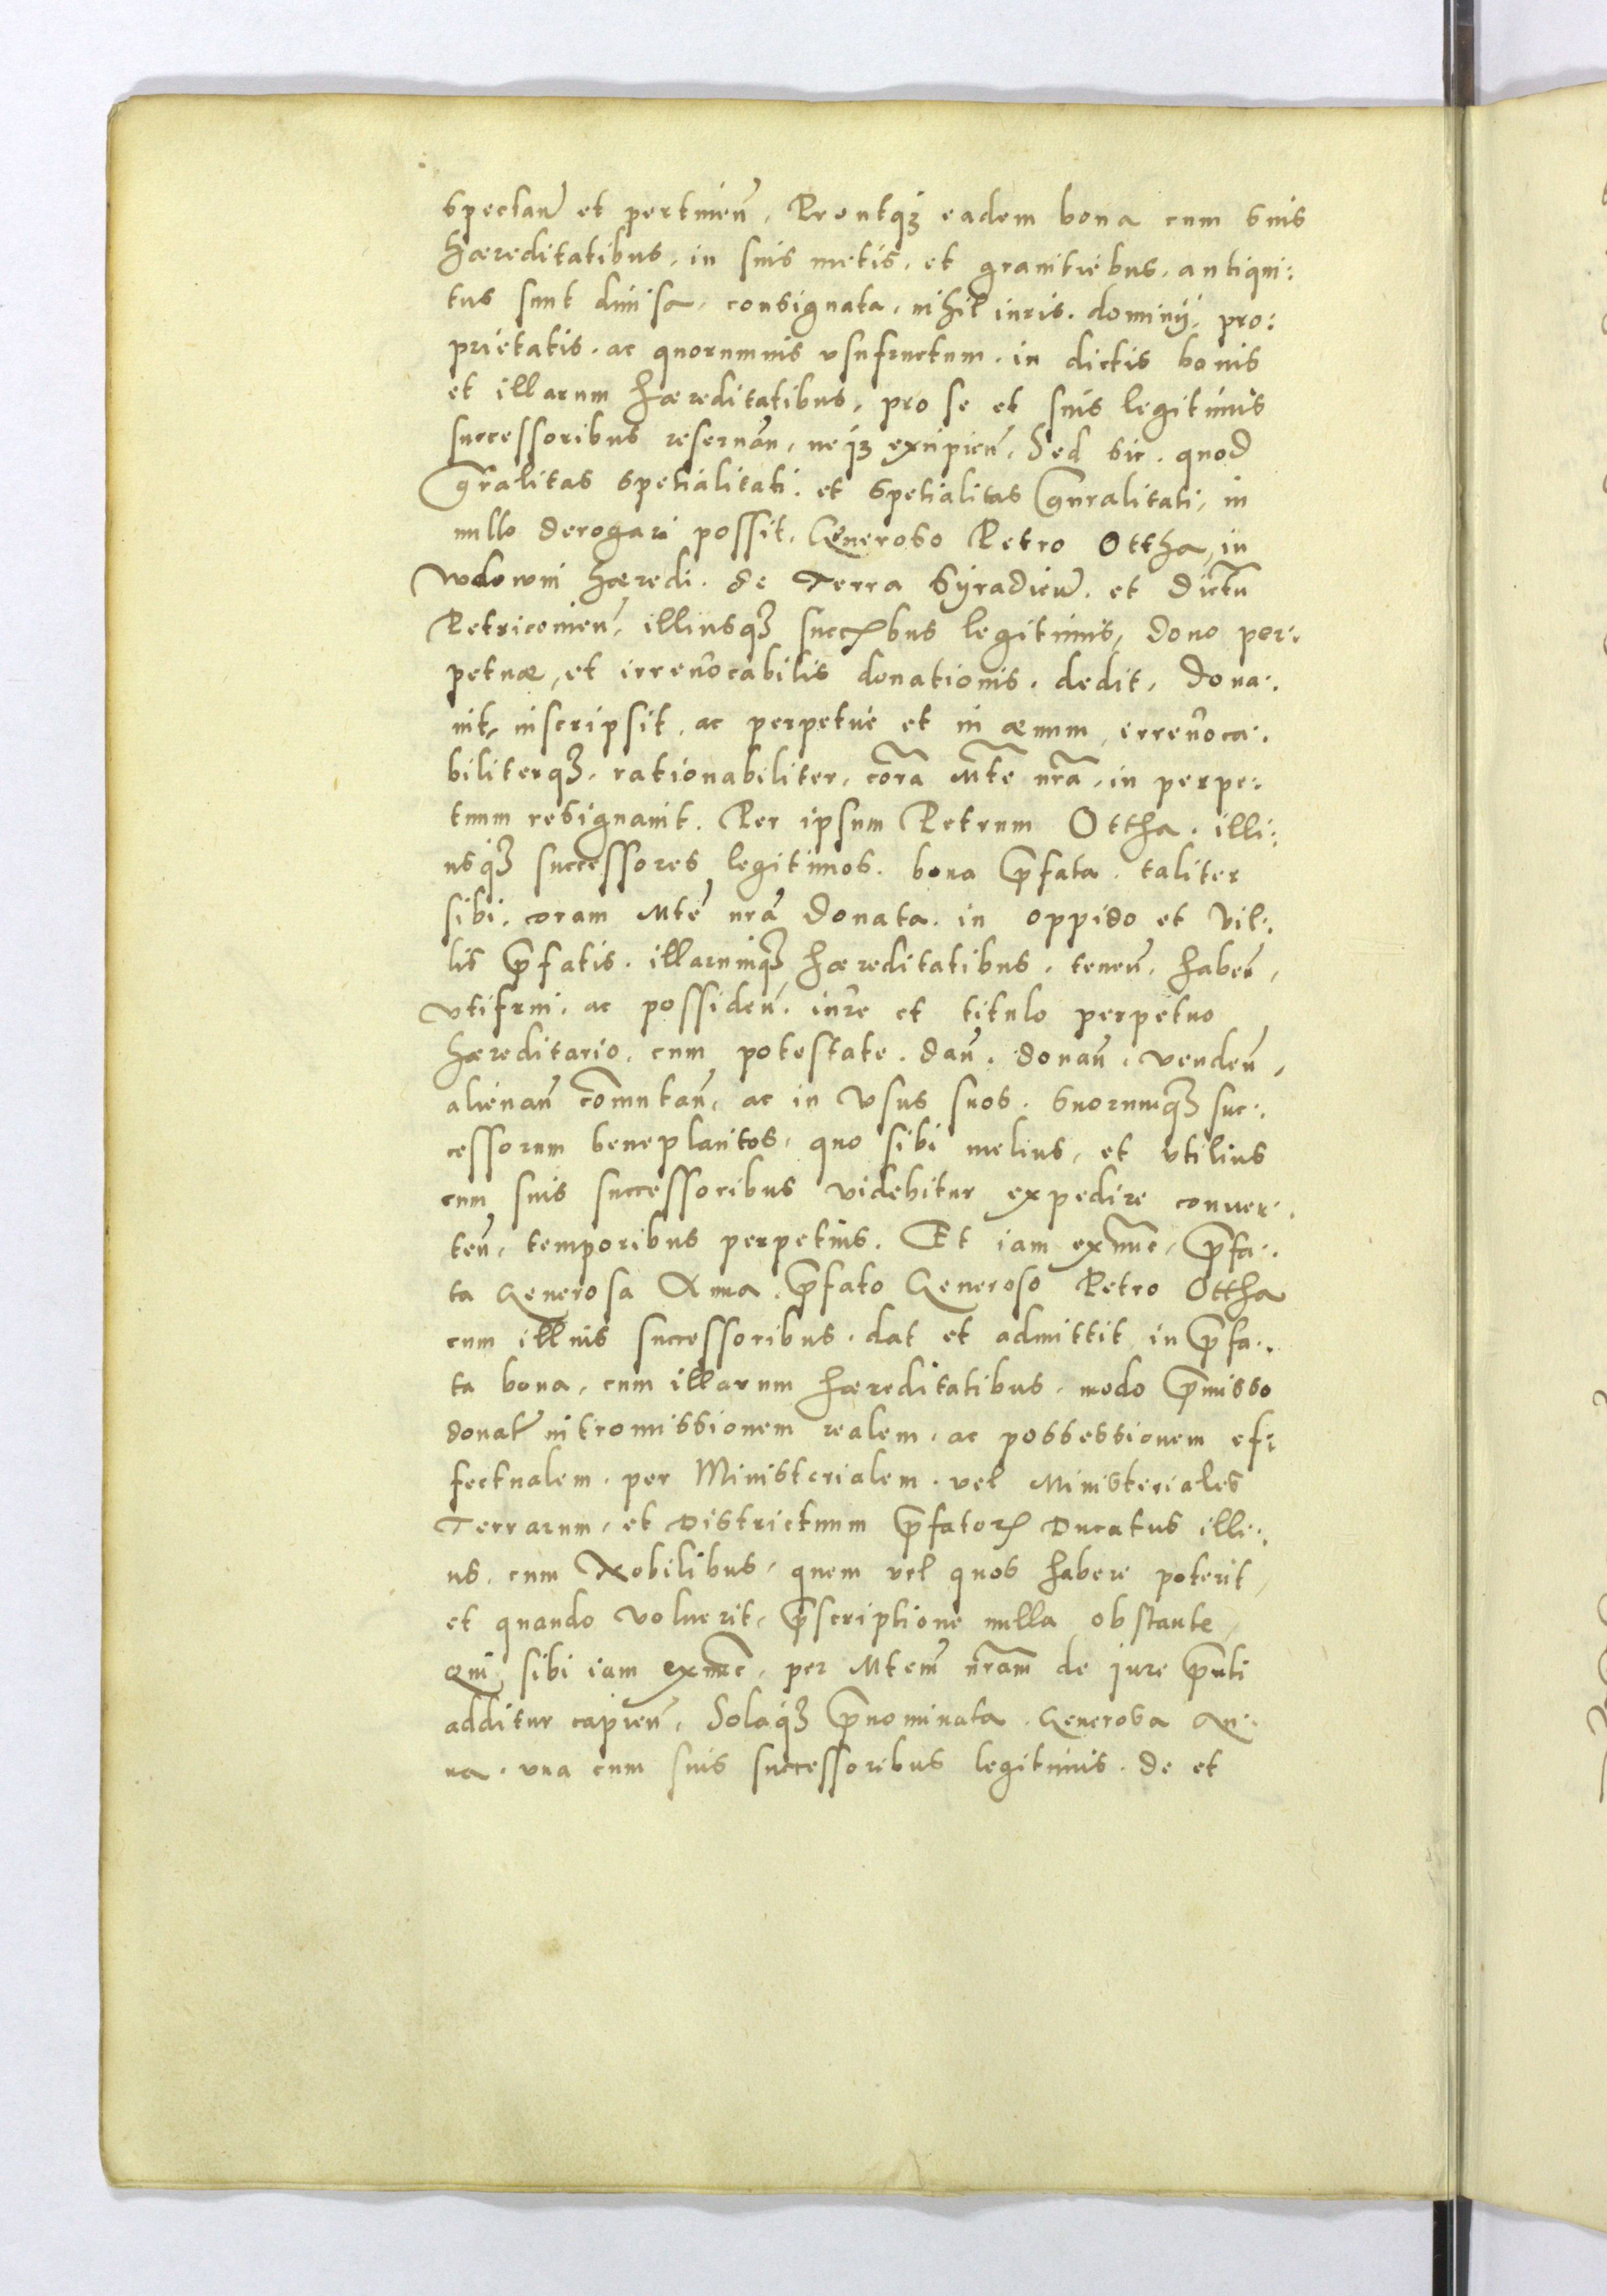 spectan̄ et pertinen̄, Proutqꝫ eadem bona cum suis
hæreditatibus, in suis metis, et granitiebus, antiqui:
tus sunt diuisa, consignata, nihil iuris, dominij, pro:
prietatis, ac quorumuis vsufructuum, in dictis bonis
et illarum hæreditatibus, pro se et suis legitimis
successoribus reseruān, neqꝫ excipien̄, Sed sic, quod
gn̄ralitas spetialitati, et spetialitas gn̄ralitati, in
nullo derogari possit, Generoso Petro Ottha, in
Wdowin hæredi, de Terra Syradien̄, et dictū
Petricouien̄, illiusqꝫ succ̄ribus legitimis, dono per:
petuæ, et irreuocabilis donationis, dedit, dona:
uit, inscripsit, ac perpetue et in æuum, irreuoca:
biliterqꝫ, rationabiliter, cōra Mt̄e nr̄a, in perpe:
tuum resignauit. Per ipsum Petrum Ottha, illi:
usqꝫ successores legitimos, bona p̄fata, taliter
sibi, coram Mte̅ nrā donata, in oppido et Vil:
lis p̄fatis, illarumqꝫ hæreditatibus, tenen̄, haben̄,
vtifrui, ac possiden̄, iure et titulo perpetuo
hæreditario, cum potestate, dan̄, donan̄, venden̄,
alienan̄ com̄utan̄, ac in Vsus suos, suorumqꝫ suc:
cessorum beneplacitos, quo sibi melius, et vtilius
cum suis successoribus videbitur expedire conuer:
ten̄, temporibus perpetuis. Et iam exnunc, p̄fa:
ta Generosa Anna, p̄fato Generoso Petro Ottha
cum illius successoribus, dat et admittit in p̄fa:
ta bona, cum illarum hæreditatibus, modo p̄misso
donat̄ intromissionem realem, ac possessionem ef:
fectualem, per Ministerialem, vel Ministeriales
Terrarum, et Districtuum p̄fatorꝝ Ducatus illi:
us, cum Nobilibus, quem vel quos habere poterit,
et quando voluerit, p̄scriptione nulla obstante,
Qui sibi iam exnunc, per Mtem̄ nr̄am de iure p̄nti
additur capien̄, Solaqꝫ p̄nominata, Generosa An:
na, vna cum suis successoribus legitimis, de et